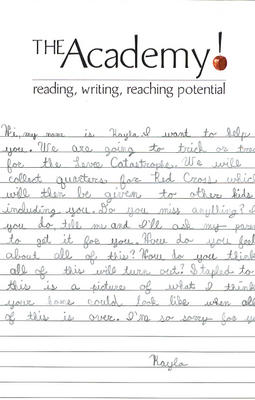 THE Academy!
reading, writing, reaching potential
Hi, my name is Kayla. I want to help
you. We are going to trick or
for the Leaves Catastrophe. We will
collect quarters for Red Cross
will then be given to other kids
including you. Do you miss anything?
you do tell me and I'll ask my
to get it for you. How do you feel
about all of this? How do you think
all of this will turn out? I taped to
this is a picture of what I think
your home could look like when all
of this is over. I'm so sorry for
Kayla